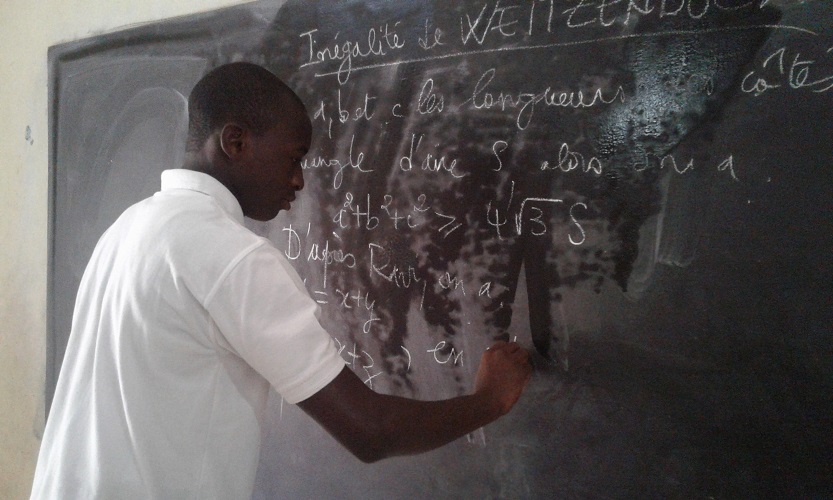 Inégalité de WEITZENBOCK
a, b et c les longueurs des côtés
angle d'aire S alors on a
a²+b²+c² ≥ 4√3 S
D'après Ravi, on a
= x+y
x+z, en